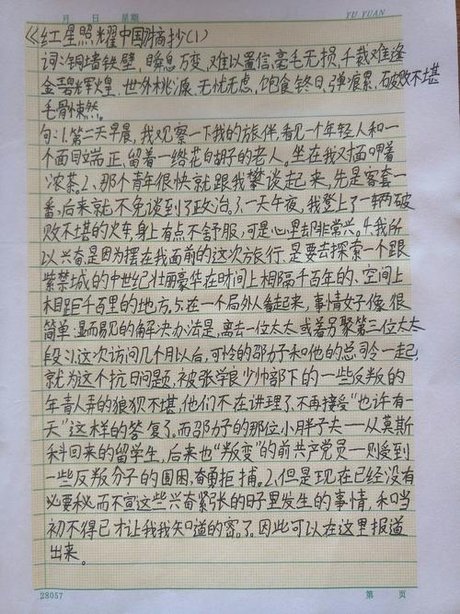 月 日 星期 YU YUAN
《红星照耀中国》摘抄(1)
词:铜墙铁壁 瞬息万变,难以置信,毫毛无损,千载难逢
金碧辉煌,世外桃源,无忧无虑,饱食终日,弹痕累,破败不堪
毛骨悚然。
句:1.第二天早晨,我观察一下我的旅伴,看见一个年轻人和一
个面目端正,留着一绺花白胡子的老人。坐在我对面呷着
浓茶。2、那个青年很快就跟我攀谈起来,先是客套一
番,后来就不免谈到了政治。3、一天午夜,我登上了一辆破
败不堪的火车,身上有点不舒服,可是心里去非常兴。4.我所
以兴奋是因为摆在我面前的这次旅行,是要去探索一个跟
紫禁城的中世纪壮丽豪华在时间上相隔千百年的、空间上
相距千百里的地方。5.在一个局外人看起来,事情好像很
简单,显而易见的解决办法是,离去一位太太,或者另聚第三位太太
段:1.这次访问几个月以后,可怜的邵分子和他的总司令一起,
就为这个抗日问题,被张学良少帅部下的一些反叛的
年青人弄的狼狈不堪,他们不在讲理了,不再接受“也许有一
天”这样的答复了。而邵分子的那位小胖子夫一从莫斯
科回来的留学生,后来也“叛变”的前共产党员一则受到
一些反叛分子的围困,奋勇拒捕。2.但是现在已经没有
必要秘而不宣这些兴奋紧张的日子里发生的事情,和当
初不得已才让我我知道的密了。因此可以在这里报道
出来。
28057 第 页